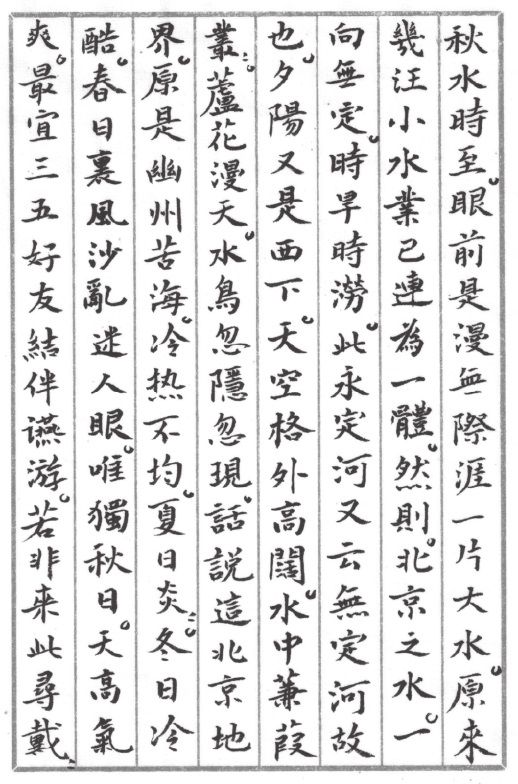 秋水時至。眼前是漫無際涯一片大水。原來
幾汪小水業已連為一體。然則。北京之水。一
向無定。時旱時澇。此永定河又云無定河故
也。夕陽又是西下。天空格外高闊。水中蒹葭
叢〻。蘆花漫天。水鳥忽隱忽現話說這北京地
界。原是幽州苦海。冷热不均。夏日炎〻。冬日冷
酷。春日裏風沙亂迷人眼。唯獨秋日。天高氣
爽。最宜三五好友結伴讌游。若非来此尋戴〻